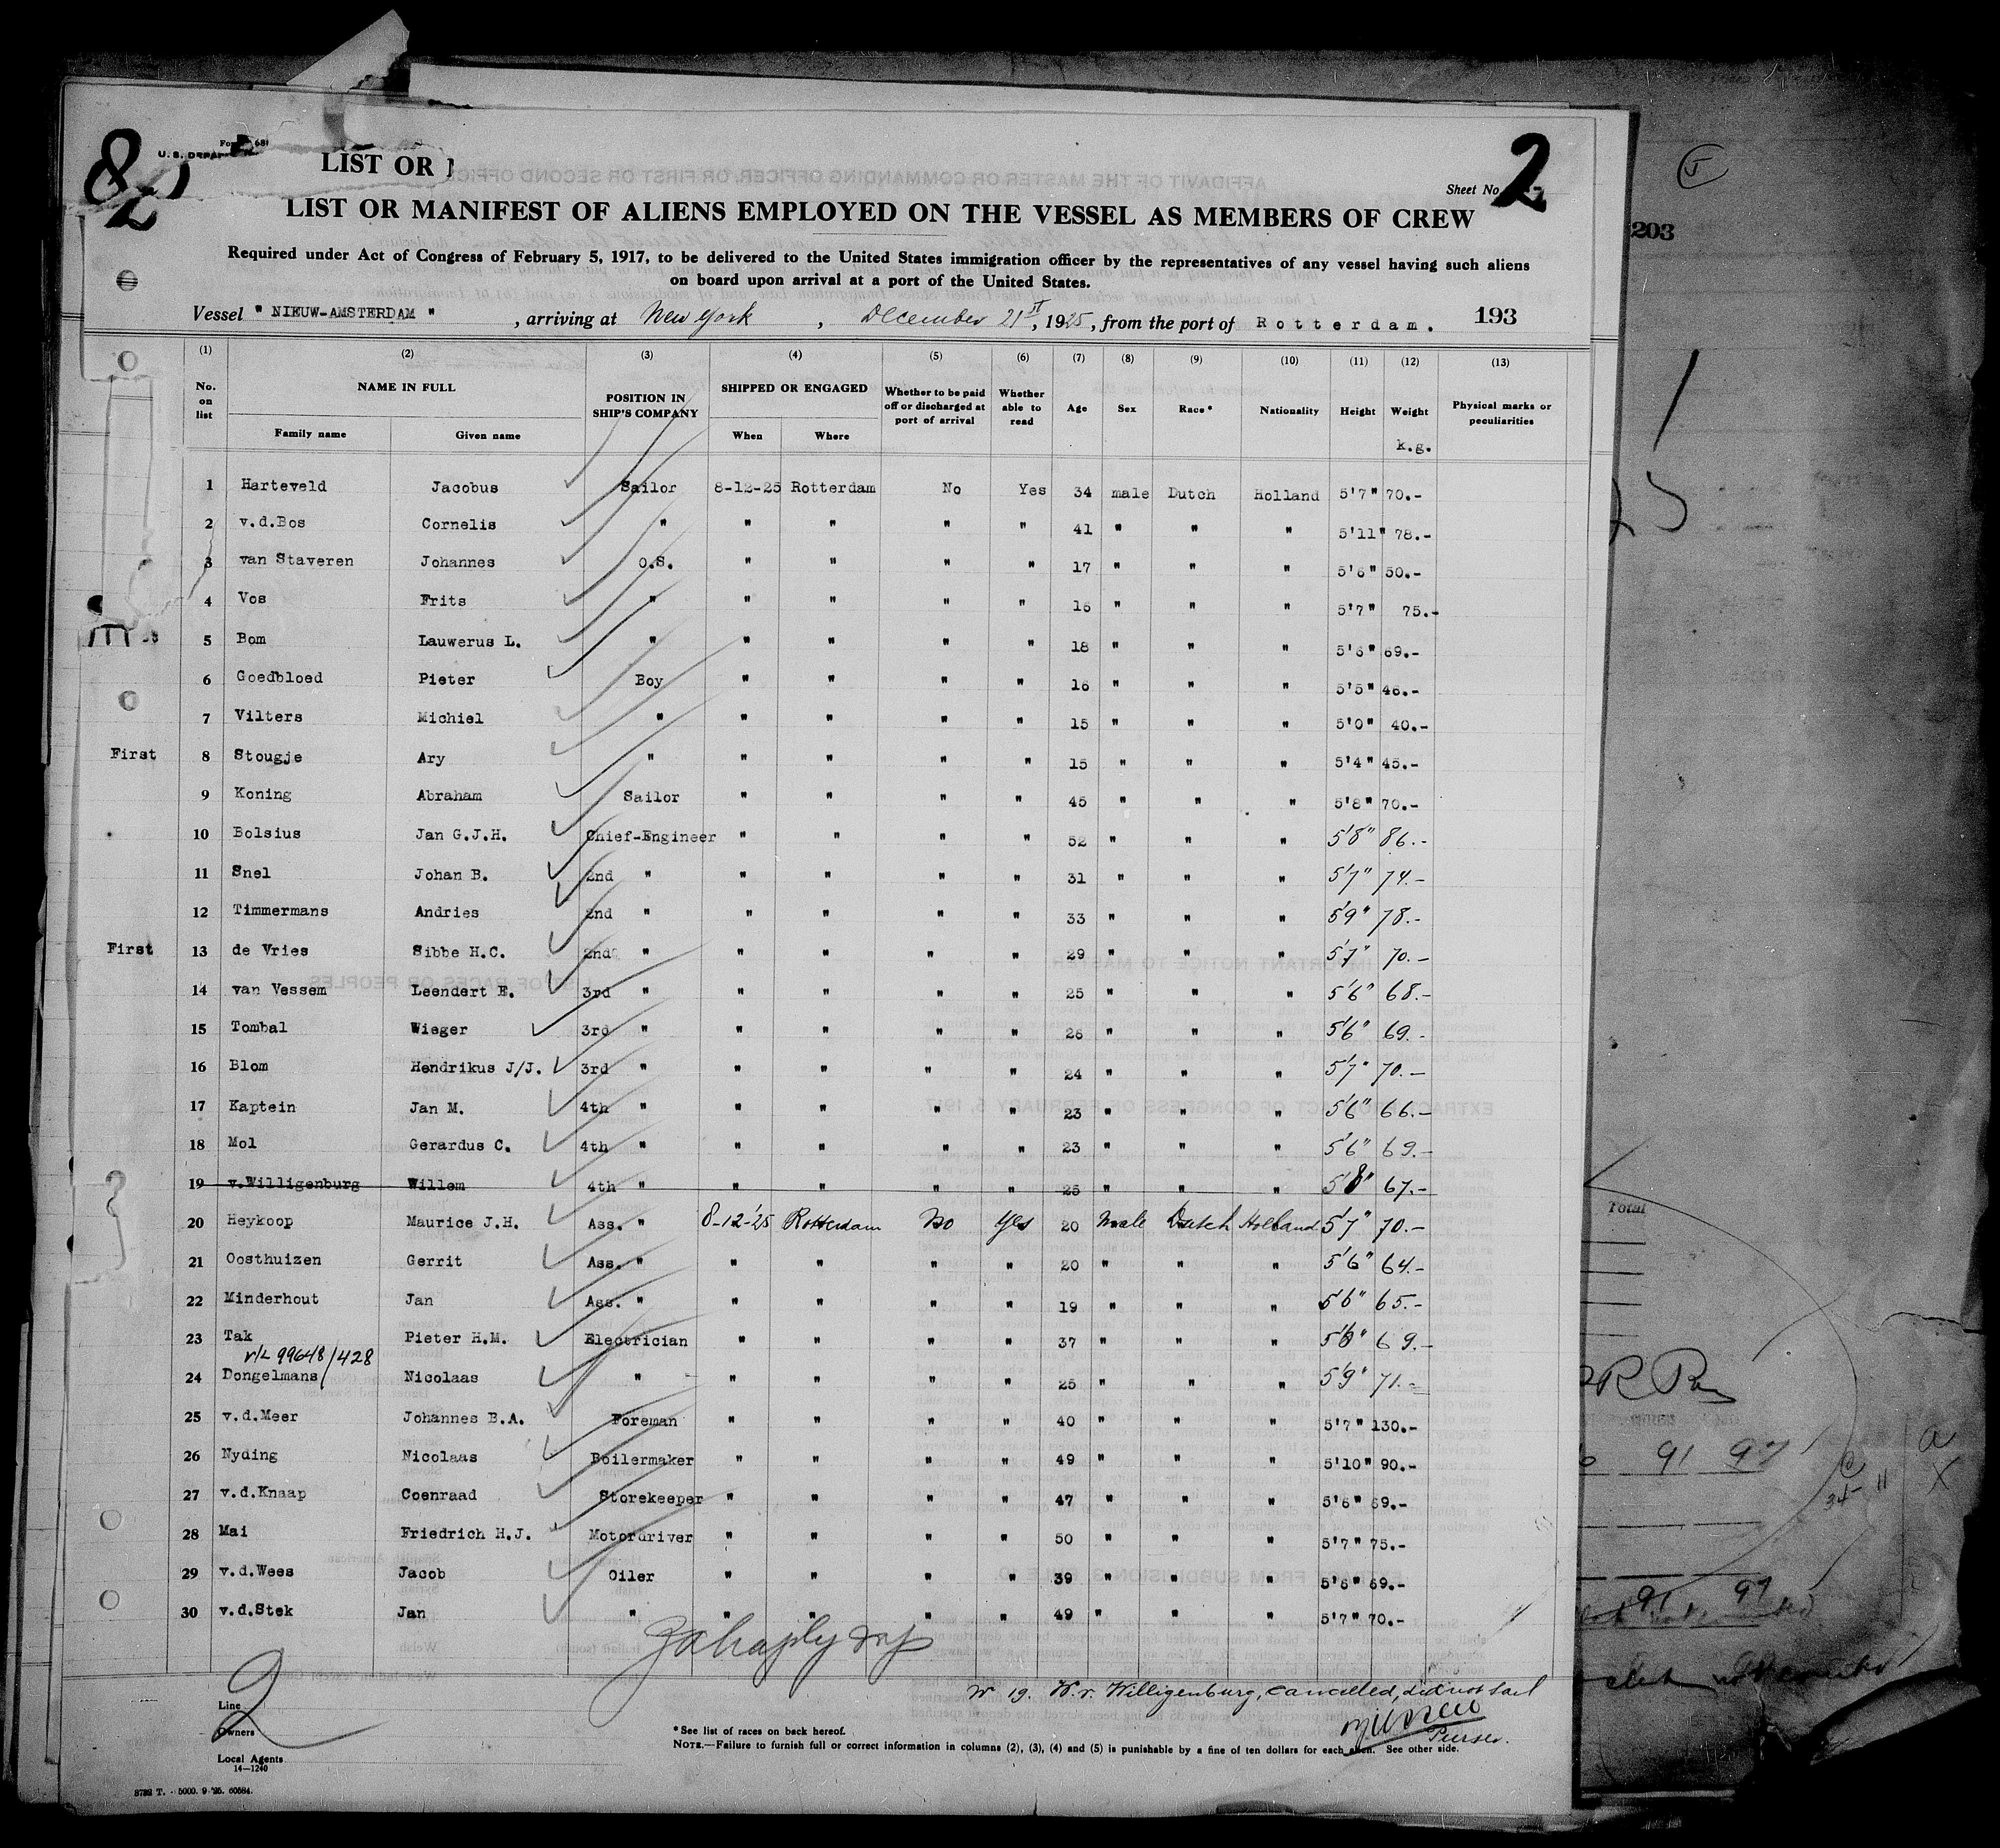 82
2
U. S. DEPA
LIST OR
Sheet No. 2
LIST OR MANIFEST OF ALIENS EMPLOYED ON THE VESSEL AS MEMBERS OF CREW
Required under Act of Congress of February 5, 1917, to be delivered to the United States immigration officer by the representatives of any vessel having such aliens
on board upon arrival at a port of the United States.
Vessel " NIEUW-AMSTERDAM ", arriving at New York, December 21st, 1925, from the port of Rotterdam. 193
(1) (2) (3) (4) (5) (6) (7) (8) (9) (10) (11) (12) (13)
No. on list NAME IN FULL POSITION IN SHIP'S COMPANY SHIPPED OR ENGAGED Whether to be paid off or discharged at port of arrival Whether able to read Age Sex Race* Nationality Height Weight Physical marks or peculiarities
Family name Given name When Where k.g.
1 Harteveld Jacobus Sailor 8-12-25 Rotterdam No Yes 34 male Dutch Holland 5'7" 70.-
2 v.d.Bos Cornelis " " " " " 41 " " " 5'11" 78.-
3 van Staveren Johannes O.S. " " " " 17 " " " 5'6" 50.-
4 Vos Frits " " " " " 16 " " " 5'7" 75.-
5 Bom Lauwerus L. " " " " " 18 " " " 5'6" 69.-
6 Goedbloed Pieter Boy " " " " 16 " " " 5'5" 46.-
7 Vilters Michiel " " " " " 15 " " " 5'0" 40.-
First 8 Stougje Ary " " " " " 15 " " " 5'4" 45.-
9 Koning Abraham Sailor " " " " 45 " " " 5'8" 70.-
10 Bolsius Jan G.J.H. Chief-Engineer " " " " 52 " " " 5'8" 86.-
11 Snel Johan B. 2nd " " " " " 31 " " " 5'7" 74.-
12 Timmermans Andries 2nd " " " " " 33 " " " 5'9" 78.-
First 13 de Vries Sibbe H.C. 2nd " " " " " 29 " " " 5'7" 70.-
14 van Vessem Leendert E. 3rd " " " " " 25 " " " 5'6" 68.-
15 Tombal Wieger 3rd " " " " " 26 " " " 5'6" 69.-
16 Blom Hendrikus J/J. 3rd " " " " " 24 " " " 5'7" 70.-
17 Kaptein Jan M. 4th " " " " " 23 " " " 5'6" 66.-
18 Mol Gerardus C. 4th " " " " " 23 " " " 5'6" 69.-
19 v.Willigenburg Willem 4th " " " " " 25 " " " 5'8" 67.-
20 Heykoop Maurice J.H. Ass. " 8-12-'25 Rotterdam No Yes 20 Male Dutch Holland 5'7" 70.-
21 Oosthuizen Gerrit Ass. " " " " " 20 " " " 5'6" 64.-
22 Minderhout Jan Ass. " " " " " 19 " " " 5'6" 65.-
23 Tak Pieter H.M. Electrician " " " " 37 " " " 5'8" 69.-
99648/428
24 Dongelmans Nicolaas " " " " " 25 " " " 5'9" 71.-
25 v.d.Meer Johannes B.A. Foreman " " " " 40 " " " 5'7" 130.-
26 Nyding Nicolaas Boilermaker " " " " 49 " " " 5'10" 90.-
27 v.d.Knaap Coenraad Storekeeper " " " " 47 " " " 5'6" 69.-
28 Mai Friedrich H.J. Motordriver " " " " 50 " " " 5'7" 75.-
29 v.d.Wees Jacob Oiler " " " " 39 " " " 5'6" 69.-
30 v.d.Stek Jan " " " " " 49 " " " 5'7" 70.-
No 19. W.v. Willigenburg, cancelled, did not sail
Purser.
2
Line
Owners
Local Agents
14—1240
*See list of races on back hereof.
NOTE.—Failure to furnish full or correct information in columns (2), (3), (4) and (5) is punishable by a fine of ten dollars for each alien. See other side.
203
Total
91 97
91 97